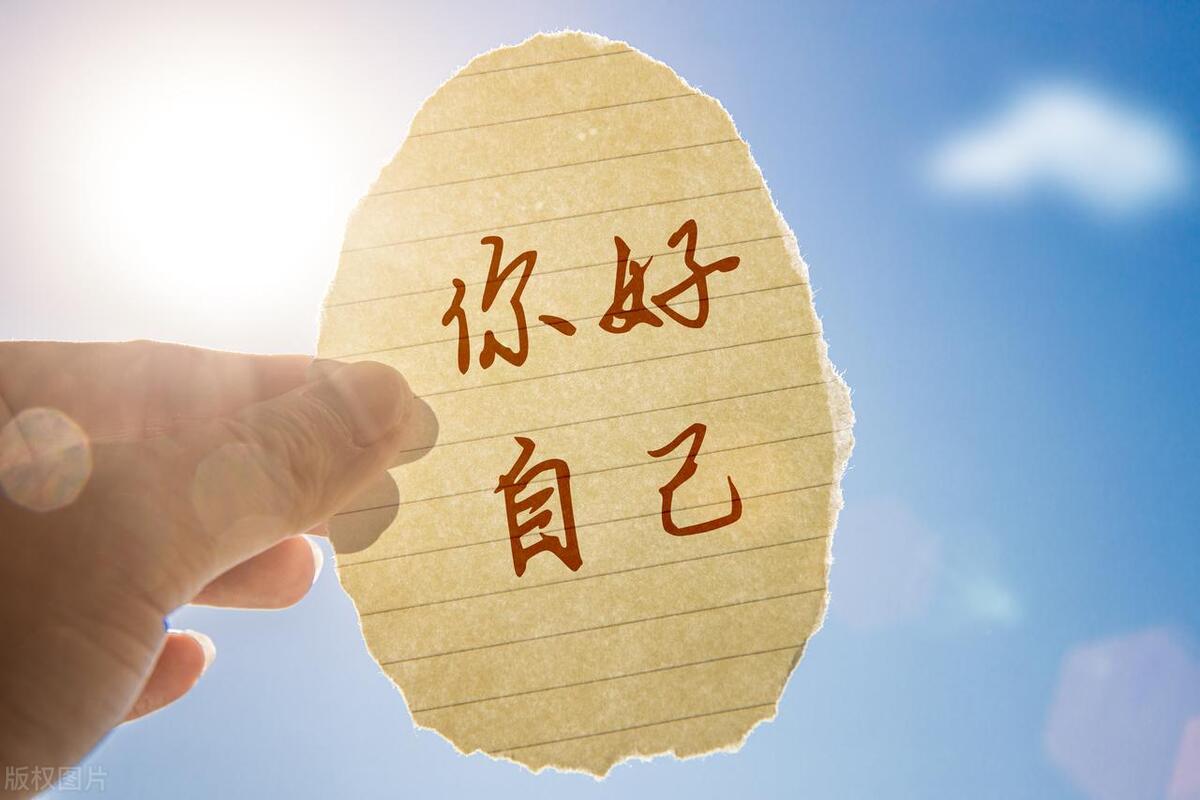 你好
自己
版权图片